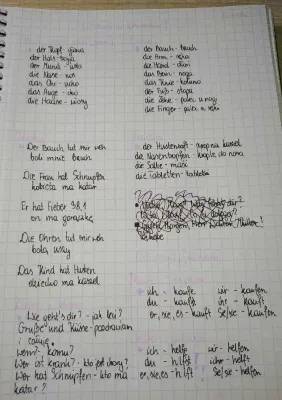 der Kopf - głowa
der Hals - szyja
der Mund - usta
die Nase - nos
das Ohr - ucho
das Auge - oko
die Haare - włosy
der Bauch - brzuch
die Hand - dłoń
das Bein - noga
das Knie - kolano
der Fuß - stopa
die Zehe - palec u nogi
die Finger - palec u ręki
Der Bauch tut mir weh
boli mnie brzuch
Die Frau hat Schnupfen
kobieta ma katar
Er hat Fieber 38,1
on ma gorączkę
Die Ohren tut mir weh
bolą uszy
Das Kind hat Husten
dziecko ma kaszel
der Hustensaft - syrop na kaszel
die Nasentropfen - krople do nosa
die Salbe - maść
die Tabletten - tabletka
Wie geht's dir? - jak leci?
Grüße und Küsse - pozdrawiam
i całuję
wem? - komu?
Wer ist krank? - kto jest chory?
Wer hat Schnupfen - kto ma
katar?
ich - kaufe
du - kaufst
er, sie, es - kauft
wir - kaufen
ihr - kauft
Sie/sie - kaufen
ich - helfe
du - hilfst
er, sie, es - hilft
wir - helfen
ihr - helft
Sie/sie - helfen